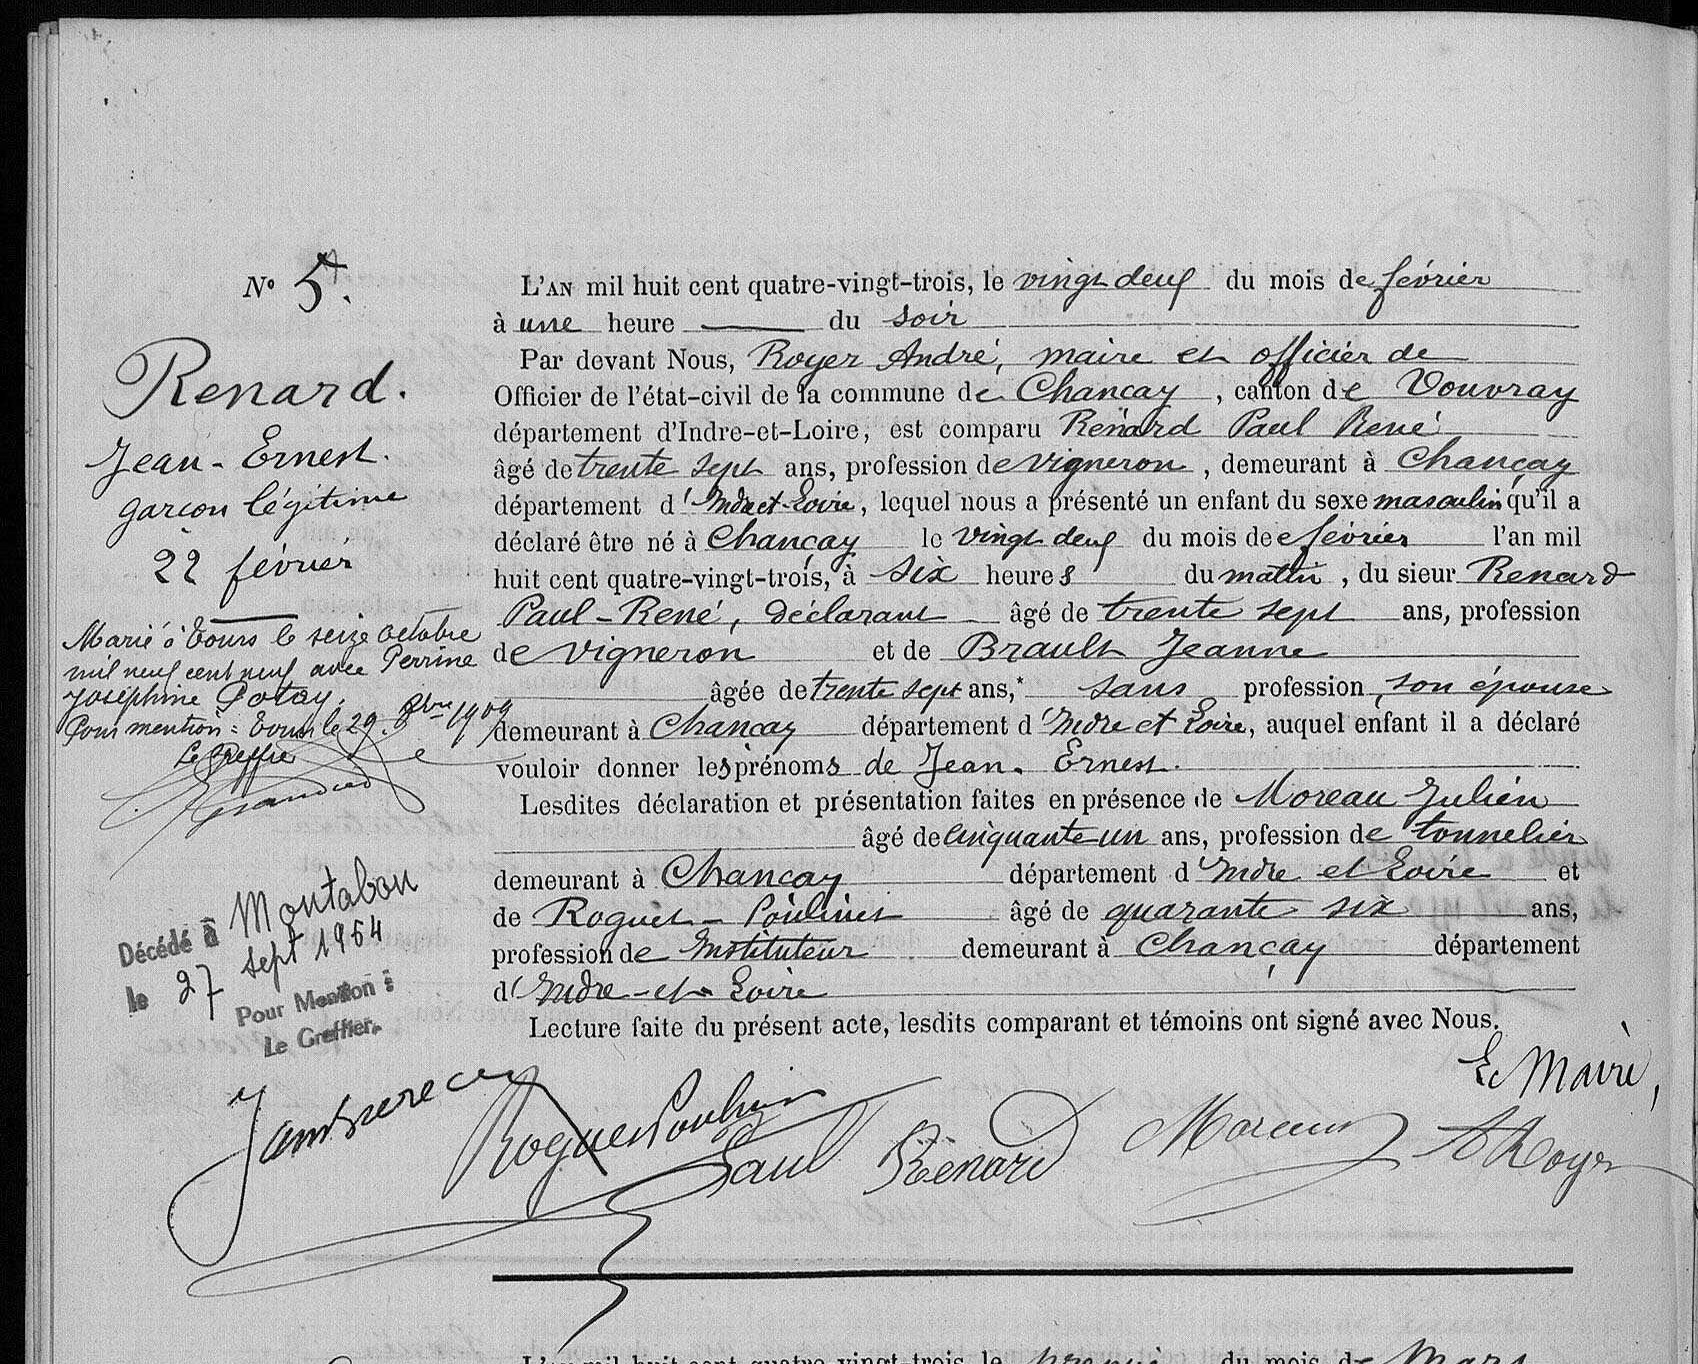 N° 5.
Renard.
Jean-Ernest.
garçon légitime
22 février
Marié à Tours le seize octobre
mil neuf cent neuf avec Perrine
Joséphine Potay.
Pour mention : Tours le 29. 8bre 1909
Le Greffier
Décédé à Montabon
le 27 sept 1964
Pour Mention :
Le Greffier,
L'AN mil huit cent quatre-vingt-trois, le vingt deux du mois de février
à une heure du soir
Par devant Nous, Royer André, maire et officier de
Officier de l'état-civil de la commune de Chancay, canton de Vouvray
département d'Indre-et-Loire, est comparu Renard Paul René
âgé de trente sept ans, profession de vigneron, demeurant à Chançay
département d'Indre et Loire, lequel nous a présenté un enfant du sexe masculin qu'il a
déclaré être né à Chançay le vingt deux du mois de février l'an mil
huit cent quatre-vingt-trois, à six heures du matin, du sieur Renard
Paul-René, déclarant âgé de trente sept ans, profession
de vigneron et de Brault Jeanne
âgée de trente sept ans, sans profession, son épouse
demeurant à Chancay département d'Indre et Loire, auquel enfant il a déclaré
vouloir donner les prénoms de Jean. Ernest.
Lesdites déclaration et présentation faites en présence de Moreau Julien
âgé de cinquante un ans, profession de tonnelier
demeurant à Chancay département d'Indre et Loire et
de Roguet-Poulinet âgé de quarante six ans,
profession de Instituteur demeurant à Chançay département
d'Indre-et-Loire
Lecture faite du présent acte, lesdits comparant et témoins ont signé avec Nous.
Le Maire,
Paul Renard Moreau A Royer
L'an mil huit cent quatre-vingt-trois le premier du mois de Mars